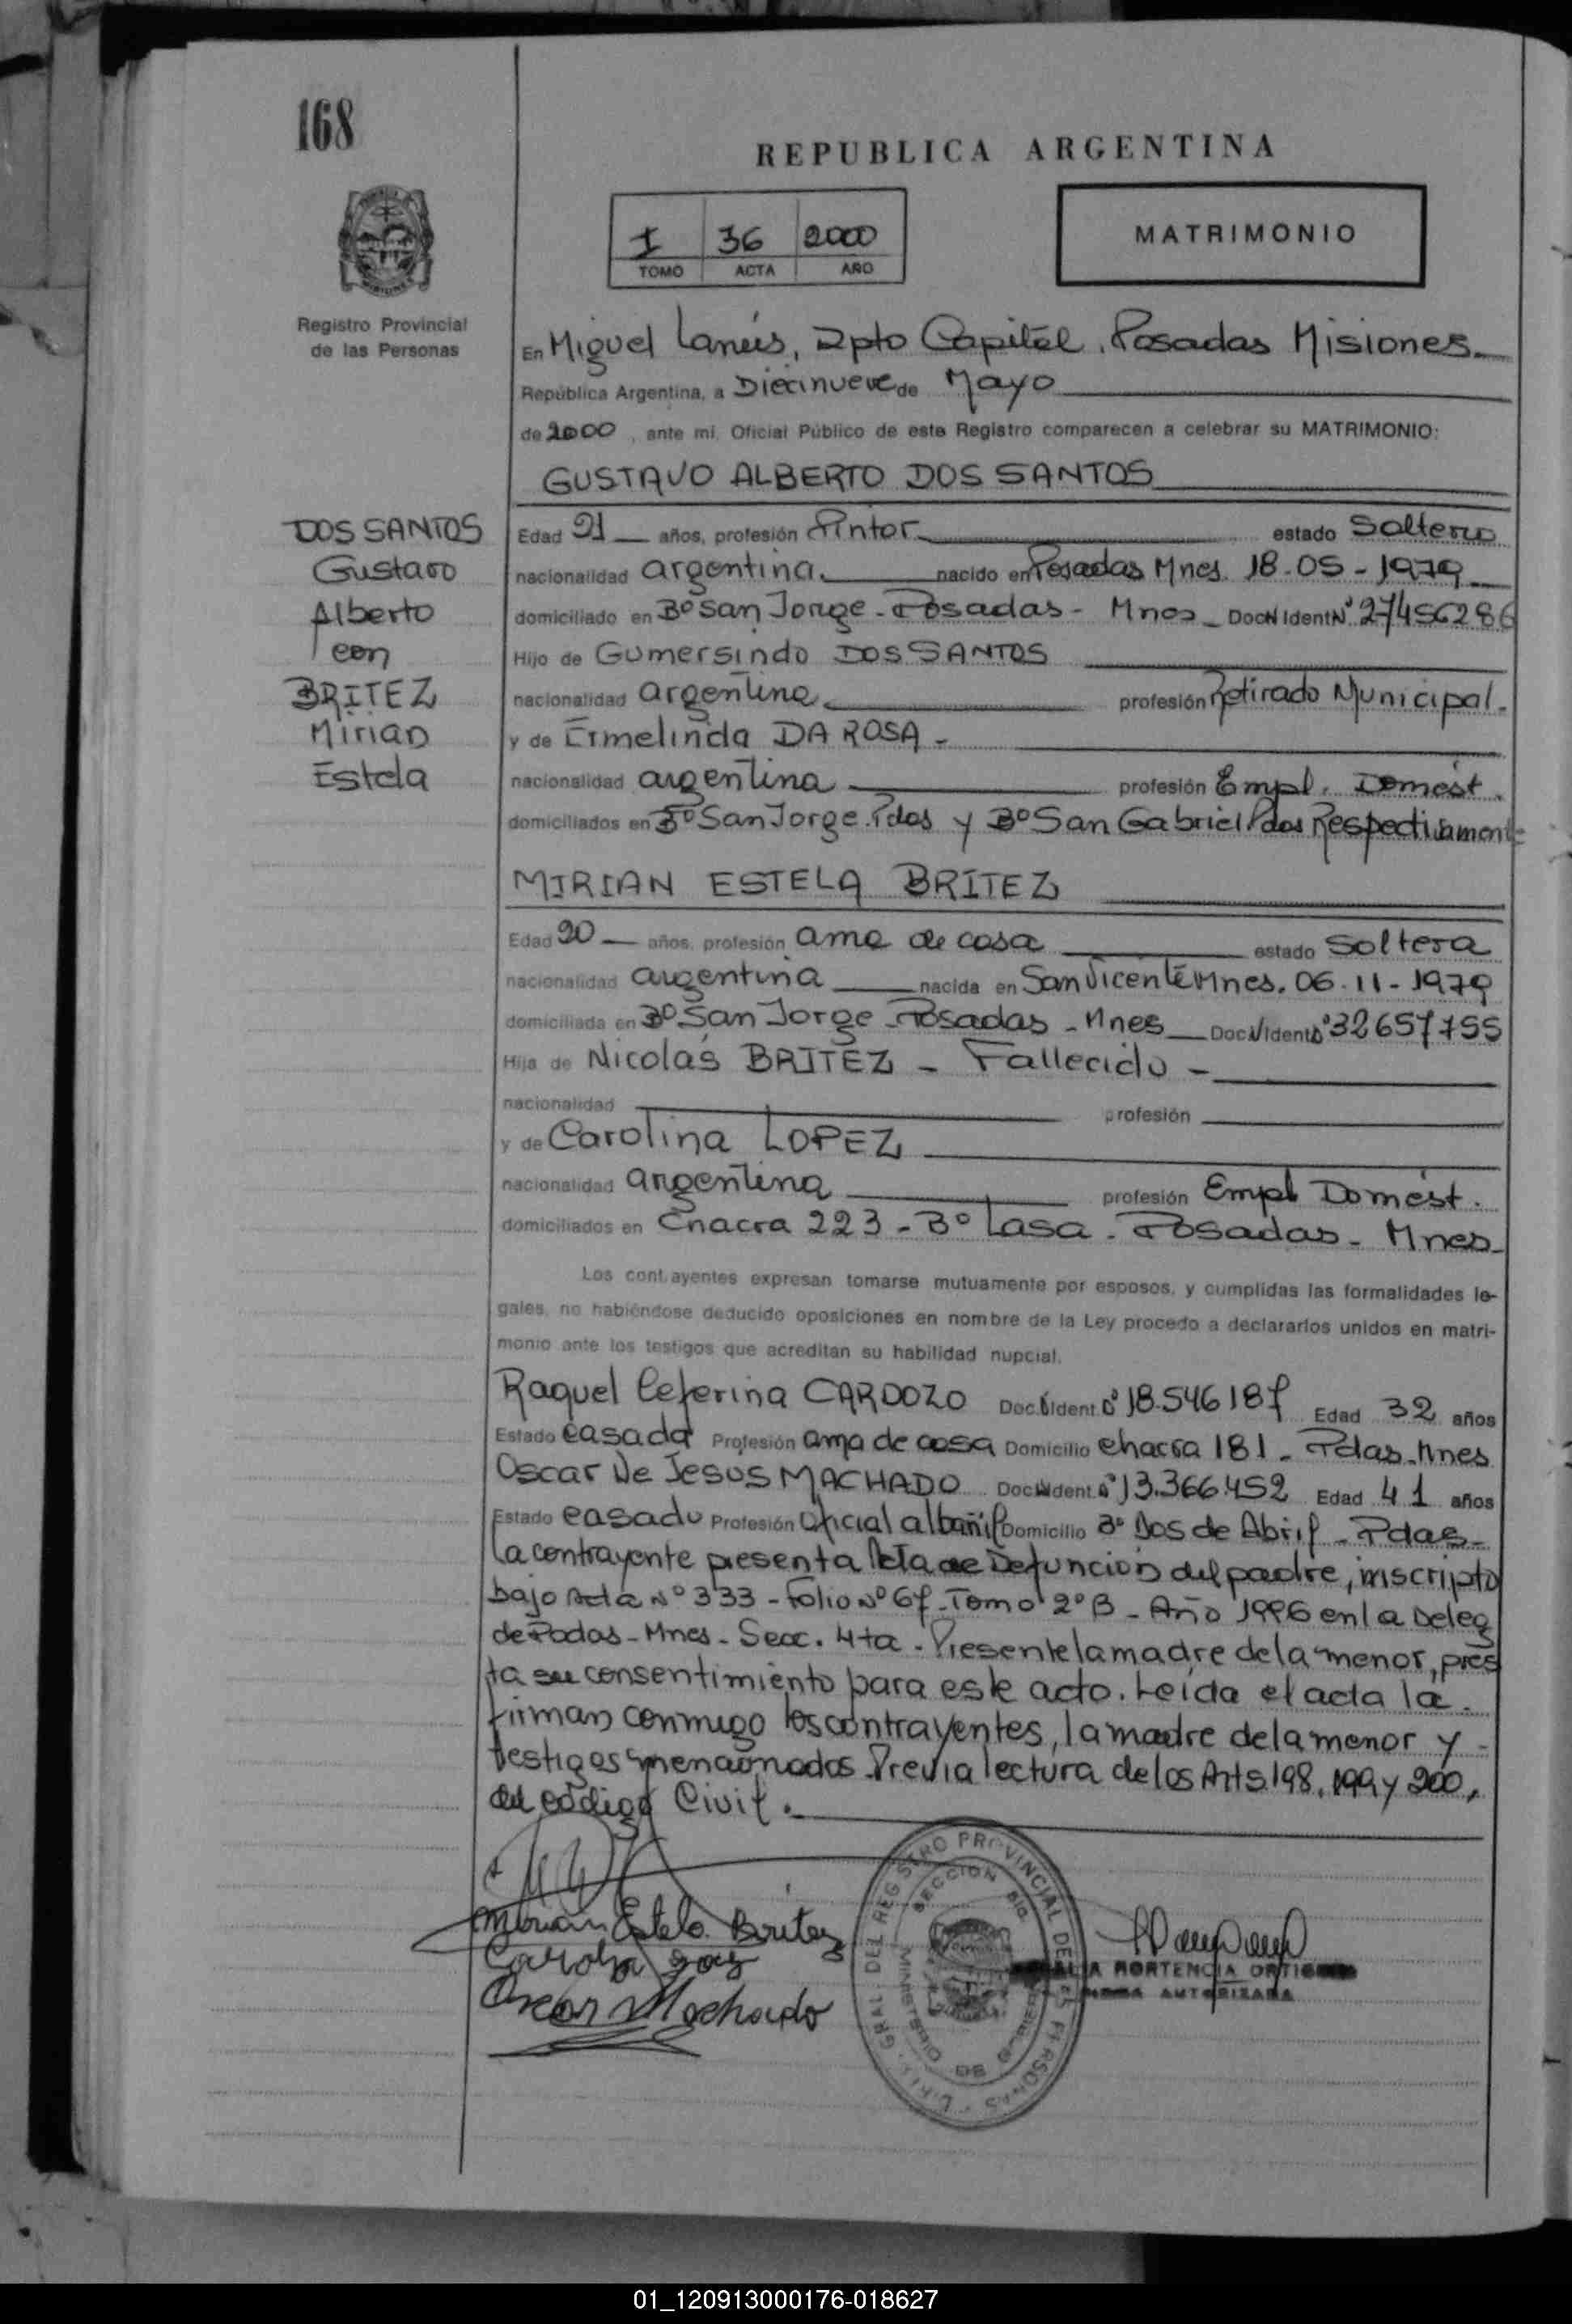 168
REPUBLICA ARGENTINA
I 36 2000
TOMO ACTA AÑO
MATRIMONIO
Registro Provincial
de las Personas
En Miguel Lanús, Dpto Capital, Posadas Misiones.
República Argentina, a Diecinueve de Mayo
de 2000, ante mi, Oficial Público de este Registro comparecen a celebrar su MATRIMONIO:
GUSTAVO ALBERTO DOS SANTOS
DOS SANTOS
Gustavo
Alberto
con
BRITEZ
Mirian
Estela
Edad 21 años, profesión Pintor estado Soltero
nacionalidad argentina. nacido en Posadas Mnes. 18-05-1979
domiciliado en Bº San Jorge - Posadas - Mnes - Doc N IdentNº 27456286
Hijo de Gumersindo DOS SANTOS
nacionalidad argentina profesión Retirado Municipal.
y de Ermelinda DA ROSA -
nacionalidad argentina profesión Empl. Domést.
domiciliados en Bº San Jorge. Pdas y Bº San Gabriel Pdas Respectivamente
MIRIAN ESTELA BRITEZ
Edad 20 años, profesión ama de casa estado Soltera
nacionalidad argentina nacida en San Vicente Mnes. 06-11-1979
domiciliada en Bº San Jorge - Posadas - Mnes Doc N Ident Nº 32657755
Hija de Nicolás BRITEZ - Fallecido -
nacionalidad profesión
y de Carolina LOPEZ
nacionalidad argentina profesión Empl Domést.
domiciliados en Chacra 223 - Bº Lasa - Posadas - Mnes
Los contrayentes expresan tomarse mutuamente por esposos, y cumplidas las formalidades le-
gales, no habiéndose deducido oposiciones en nombre de la Ley procedo a declararlos unidos en matri-
monio ante los testigos que acreditan su habilidad nupcial.
Raquel Ceferina CARDOZO Doc. N Ident. Nº 18.546187 Edad 32 años
Estado casada Profesión ama de casa Domicilio chacra 181 - Pdas. Mnes
Oscar De Jesús MACHADO Doc N Ident Nº 13.366.452 Edad 41 años
Estado casado Profesión Oficial albañil Domicilio Bº Dos de Abril - Pdas -
La contrayente presenta Acta de Defunción del padre, inscripto
bajo Acta Nº 333 - Folio Nº 67 - Tomo 2º B - Año 1996 en la Deleg
de Podas - Mnes - Secc. 4ta - Presente la madre de la menor, pres
ta su consentimiento para este acto. Leída el acta la
firman conmigo los contrayentes, la madre de la menor y -
testigos mencionados. Previa lectura de los Arts. 198, 199 y 200,
del código Civil.
Mirian Estela Britez
Oscar Machado
DIR. GRAL. DEL REGISTRO PROVINCIAL DE LAS PERSONAS
SECCION
MINISTERIO DE GOBIERNO
HORTENCIA
AUTORIZADA
01_120913000176-018627